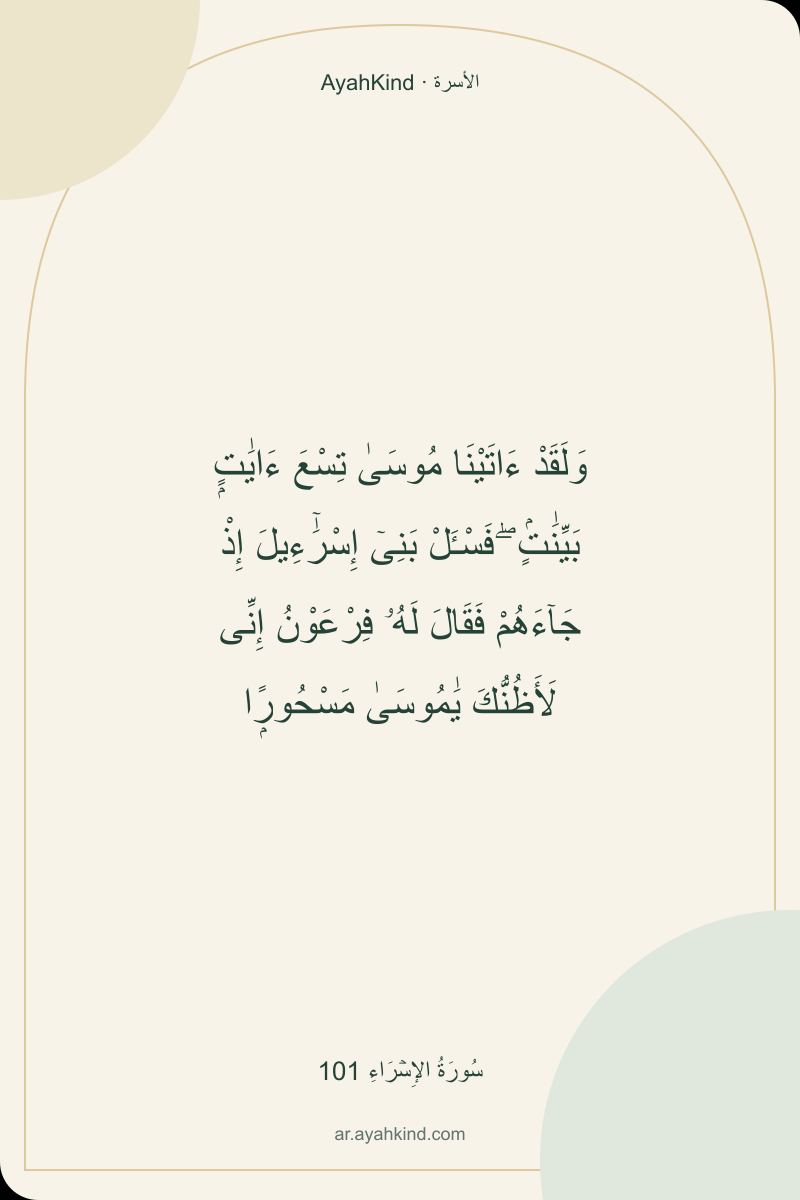 AyahKind · الأسرة
وَلَقَدْ ءَاتَيْنَا مُوسَىٰ تِسْعَ ءَايَٰتٍۭ
بَيِّنَٰتٍۢ ۖ فَسْـَٔلْ بَنِىٓ إِسْرَٰٓءِيلَ إِذْ
جَآءَهُمْ فَقَالَ لَهُۥ فِرْعَوْنُ إِنِّى
لَأَظُنُّكَ يَٰمُوسَىٰ مَسْحُورًۭا
سُورَةُ الإِسۡرَاءِ 101
ar.ayahkind.com